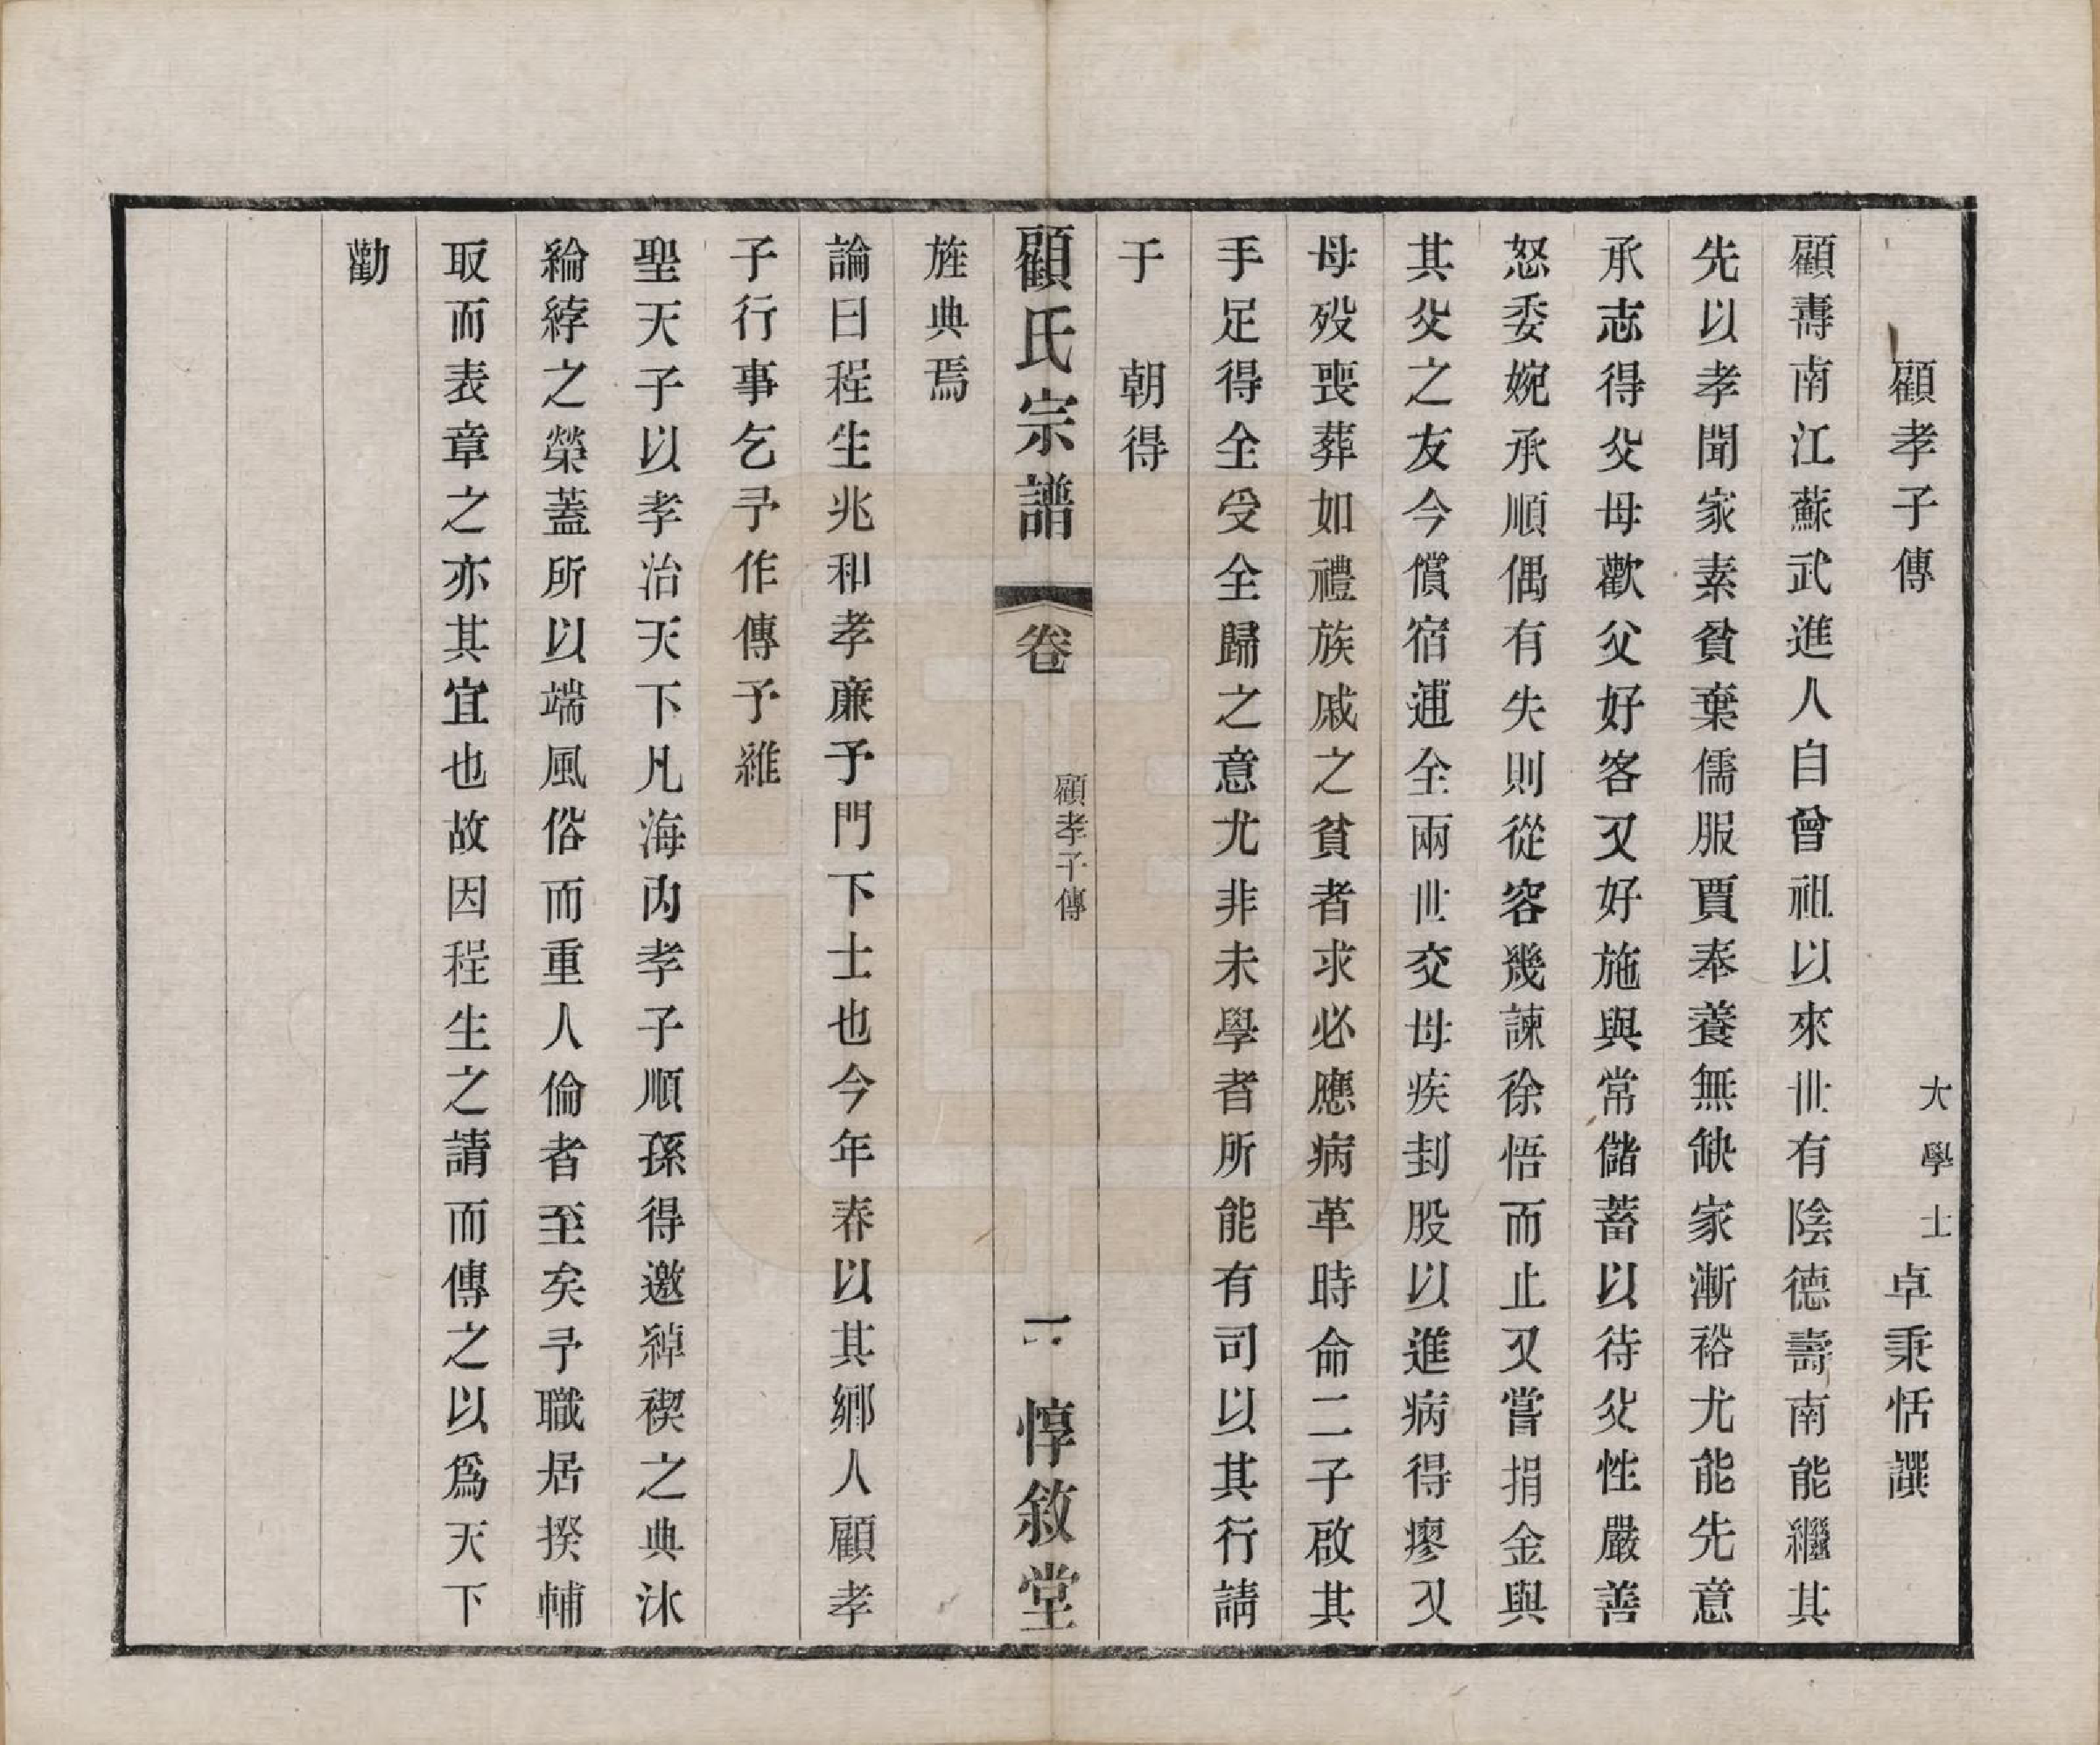 顧孝子傳
大學士卓秉恬譔
顧壽南江蘇武進人自曾祖以來世有陰德壽南能繼其
先以孝聞家素貧棄儒服賈奉養無缺家漸裕尤能先意
承志得父母歡父好客又好施與常儲蓄以待父性嚴善
怒委婉承順偶有失則從容幾諫徐悟而止又嘗捐金與
其父之友今償宿逋全兩世交母疾刲股以進病得瘳又
母歿喪葬如禮族戚之貧者求必應病革時命二子啟其
手足得全受全歸之意尤非未學者所能有司以其行請
于　朝得
顧氏宗譜　卷　顧孝子傳　一　惇敘堂
旌典焉
論曰程生兆和孝廉予門下士也今年春以其鄉人顧孝
子行事乞予作傳予維
聖天子以孝治天下凡海內孝子順孫得邀綽楔之典沐
綸綍之榮蓋所以端風俗而重人倫者至矣予職居揆輔
取而表章之亦其宜也故因程生之請而傳之以爲天下
勸